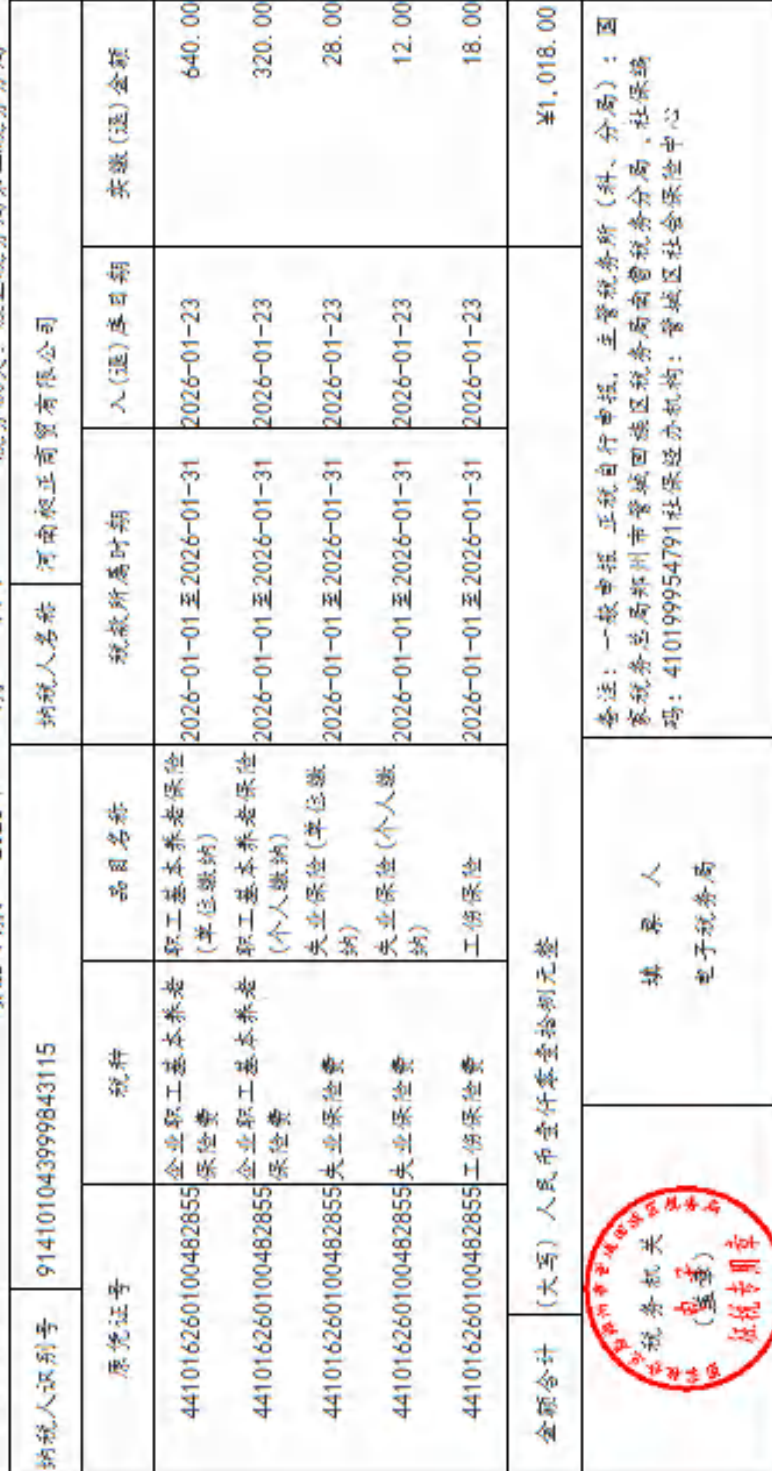 纳税人识别号 91410104399984 3115 纳税人名称 河南枧正商贸有限公司
原凭证号 税种 品目名称 税款所属时期 入(退)库日期 实缴(退)金额
441016260100482855 企业职工基本养老保险费 职工基本养老保险(单位缴纳) 2026-01-01至2026-01-31 2026-01-23 640.00
441016260100482855 企业职工基本养老保险费 职工基本养老保险(个人缴纳) 2026-01-01至2026-01-31 2026-01-23 320.00
441016260100482855 失业保险费 失业保险(单位缴纳) 2026-01-01至2026-01-31 2026-01-23 28.00
441016260100482855 失业保险费 失业保险(个人缴纳) 2026-01-01至2026-01-31 2026-01-23 12.00
441016260100482855 工伤保险费 工伤保险 2026-01-01至2026-01-31 2026-01-23 18.00
金额合计 (大写) 人民币壹仟零壹拾捌元整 ¥1,018.00
税务机关
(盖章)
征税专用章
填票人
电子税务局
备注:一般申报 正税自行申报,主管税务所(科、分局):国
家税务总局郑州市管城回族区税务局南曹税务分局,社保编
码:410199954791社保经办机构:管城区社会保险中心